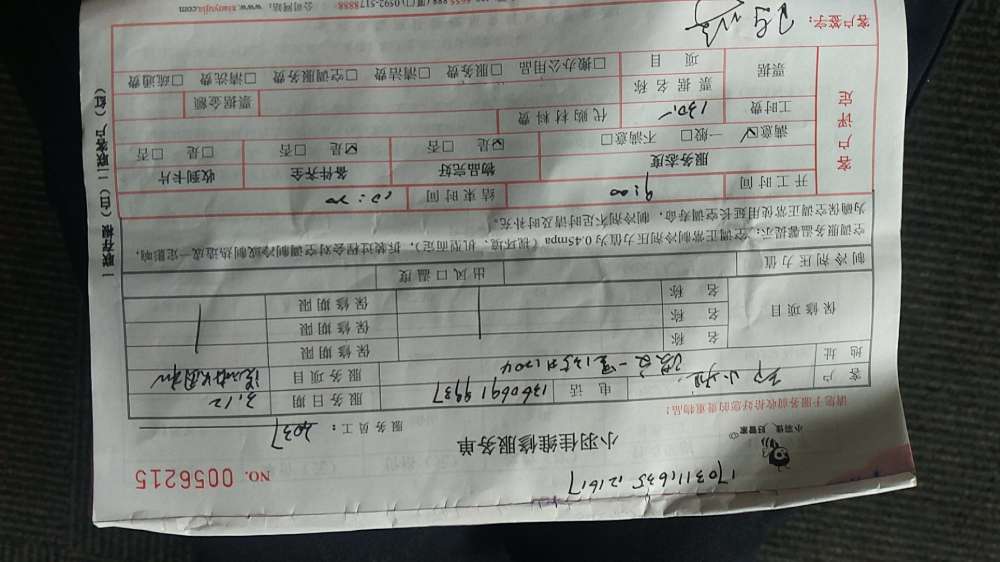 1703111635 121617
小羽佳，好管家
小羽佳维修服务单
NO. 0056215
请您于服务前收拾好您的贵重物品！
服务员工：2037
客户 电话 13606919937 服务日期 3.12
地址 服务项目
保修项目 名称 保修期限
名称 保修期限
名称 保修期限
制冷剂压力值 出风口温度
空调服务温馨提示：空调正常制冷剂压力值为0.45mpa（视环境、机型而定），拆装过程会对空调制冷或制热造成一定影响，
为确保空调正常使用延长空调寿命，制冷剂不足时请及时补充。
开工时间 9:00 结束时间
客户评定
服务态度 物品完好 备件齐全 收到卡片
满意☑ 一般□ 不满意□ ☑是 □否 ☑是 □否 □是 □否
工时费 130.- 代购材料费
票据 票据名称 票据金额
项目 □搬办公用品 □服务费 □清洁费 □空调服务费 □清洗费 □疏通费
客户签字：
公司网站：www.xiaoyujia.com
一联存根（白）二联客户（红）